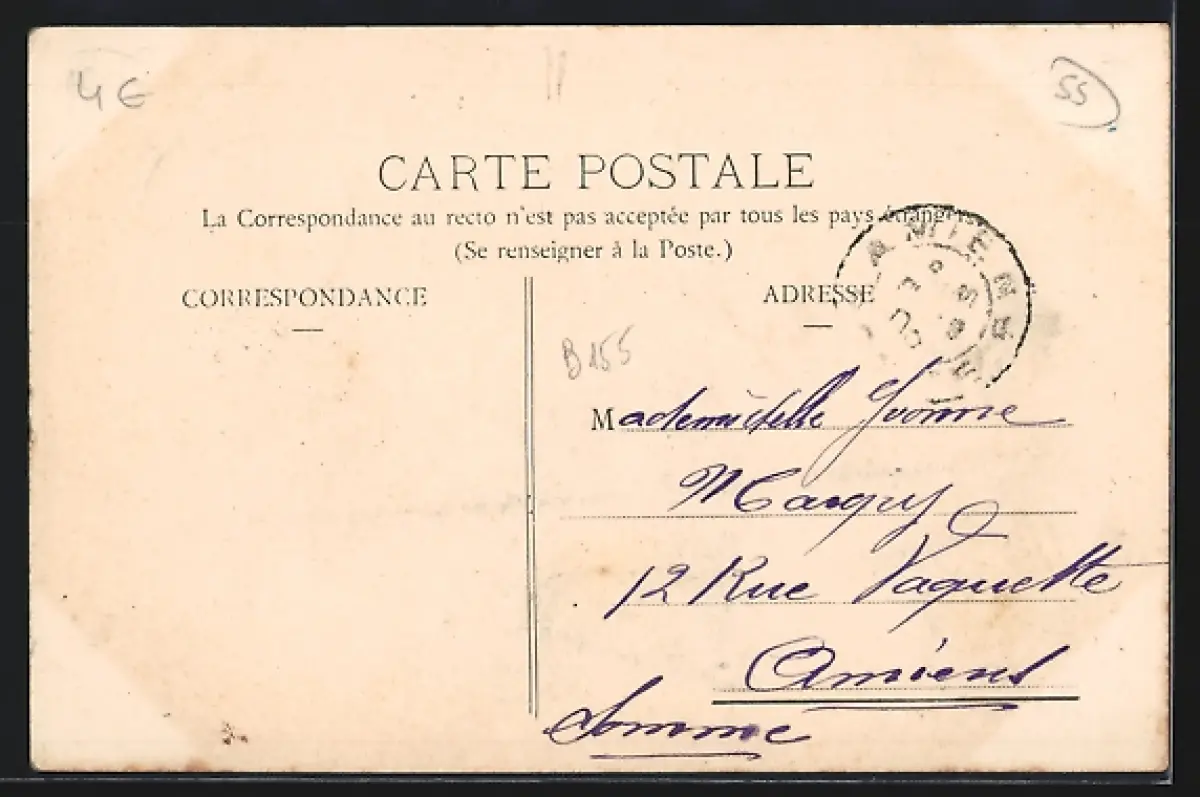 4 €
55
CARTE POSTALE
La Correspondance au recto n'est pas acceptée par tous les pays étrangers
(Se renseigner à la Poste.)
CORRESPONDANCE
ADRESSE
AMIENS
B155
Mademoiselle Yvonne
12 Rue Vaquette
Amiens
Somme